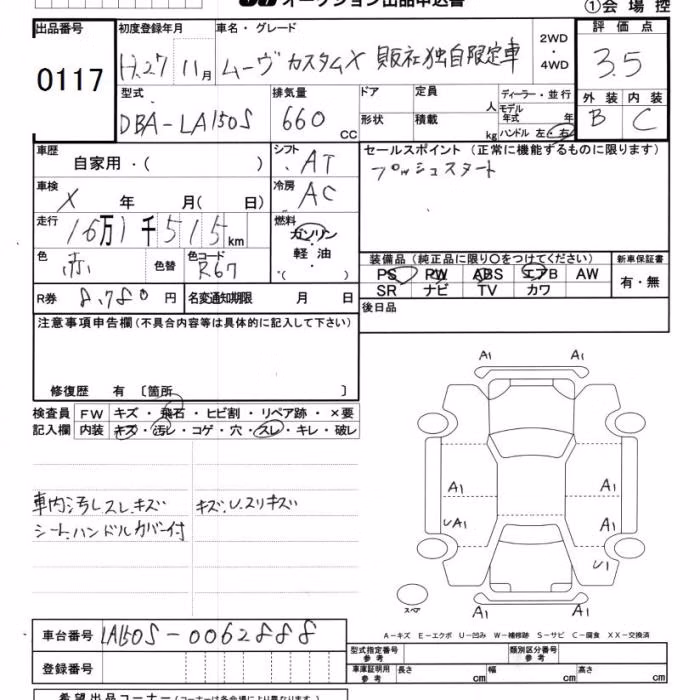 オークション出品申込書
①会場控
出品番号 初度登録年月 車名・グレード 2WD・4WD 評価点
0117 H.27 11月 ムーヴ カスタムX 販社独自限定車 3.5
型式 排気量 ドア 定員 人 ディーラー・並行 外装 内装
DBA-LA150S 660 CC 形状 積載 kg モデル年式 年 B C
ハンドル 左・右
車歴 自家用・( ) シフト AT セールスポイント (正常に機能するものに限ります)
車検 X 年 月( 日) 冷房 AC プッシュスタート
走行 16万1千515km 燃料 ガソリン・軽油・( )
色 赤 色替 色コード R67 装備品 (純正品に限り○をつけてください) 新車保証書
PS PW ABS エアB AW 有・無
SR ナビ TV カワ
R券 8,780円 名変通知期限 月 日 後日品
注意事項申告欄(不具合内容等は具体的に記入して下さい)
修復歴 有 〔箇所 〕
検査員 FW キズ・飛石・ヒビ割・リペア跡・×要
記入欄 内装 キズ・汚レ・コゲ・穴・スレ・キレ・破レ
A1 A1
車内汚レスレキズ キズ、U、スリキズ A1 A1
シート、ハンドルカバー付 UA1 A1
U1
スペア A1 A1
A-キズ E-エクボ U-凹み W-補修跡 S-サビ C-腐食 XX-交換済
車台番号 LA150S-0062888
登録番号 型式指定番号 参考 類別区分番号 参考
車庫証明用 参考 長さ cm 幅 cm 高さ cm
希望出品コーナー (コーナーは各会場により異なります)